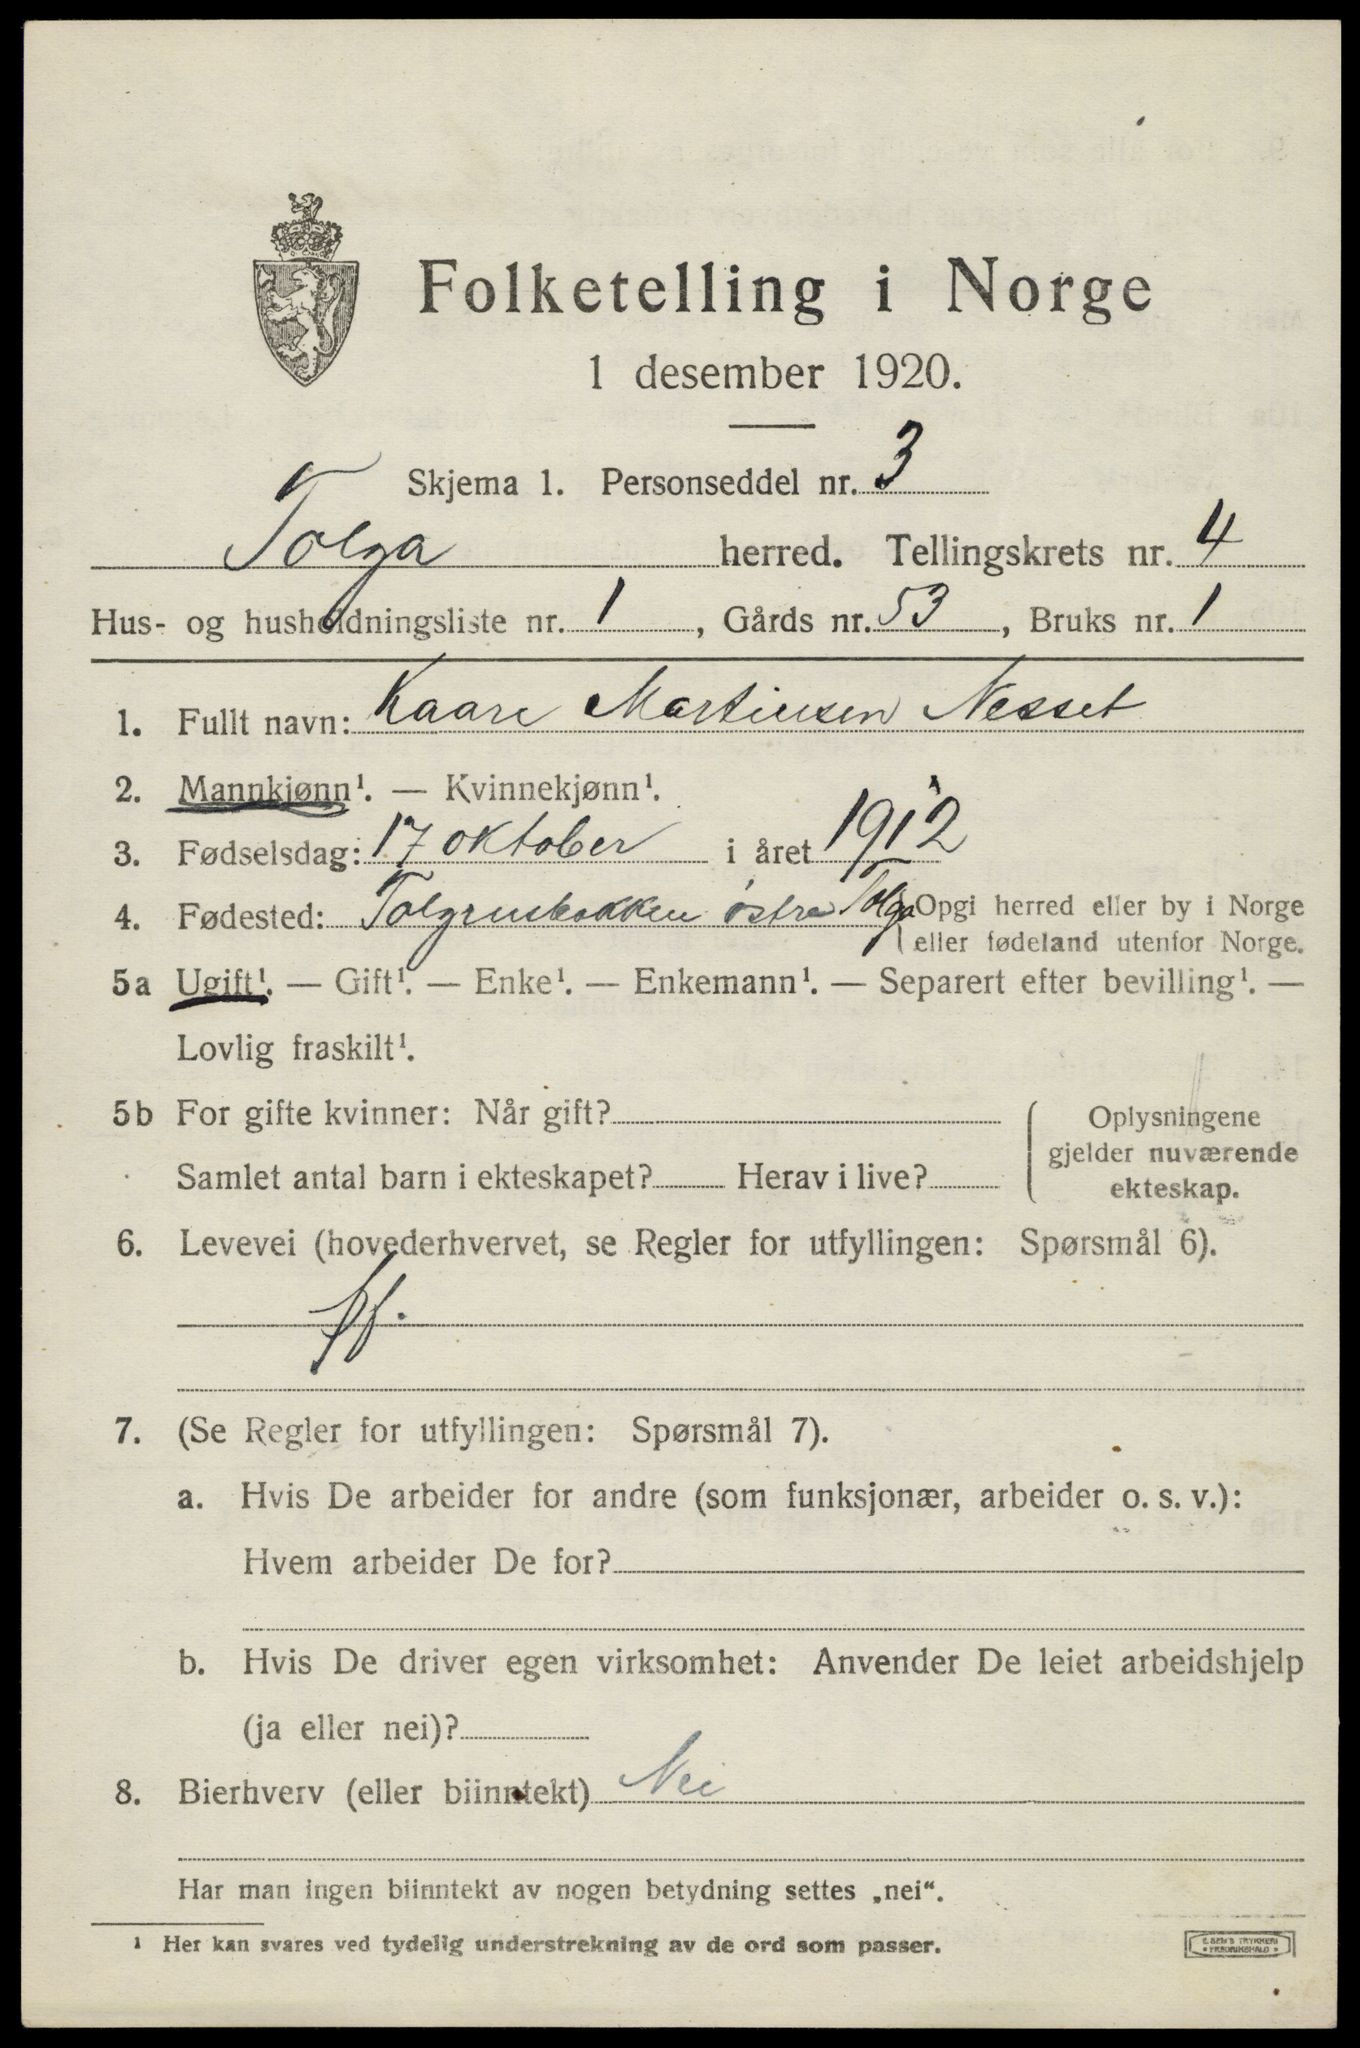 Folketelling i Norge
1 desember 1920.
Skjema 1. Personseddel nr. 3
Tolga herred. Tellingskrets nr. 4
Hus- og husholdningsliste nr. 1, Gårds nr. 53, Bruks nr. 1
1. Fullt navn: Kaare Martinsen Nesset
2. Mannkjønn¹. — Kvinnekjønn¹.
3. Fødselsdag: 17 oktober i året 1912
4. Fødested: østre Tolga Opgi herred eller by i Norge
eller fødeland utenfor Norge.
5a Ugift¹. — Gift¹. — Enke¹. — Enkemann¹. — Separert efter bevilling¹. —
Lovlig fraskilt¹.
5b For gifte kvinner: Når gift?
Samlet antal barn i ekteskapet? Herav i live?
Oplysningene
gjelder nuværende
ekteskap.
6. Levevei (hovederhvervet, se Regler for utfyllingen: Spørsmål 6).
7. (Se Regler for utfyllingen: Spørsmål 7).
a. Hvis De arbeider for andre (som funksjonær, arbeider o. s. v.):
Hvem arbeider De for?
b. Hvis De driver egen virksomhet: Anvender De leiet arbeidshjelp
(ja eller nei)?
8. Bierhverv (eller biinntekt) Nei
Har man ingen biinntekt av nogen betydning settes „nei“.
¹ Her kan svares ved tydelig understrekning av de ord som passer.